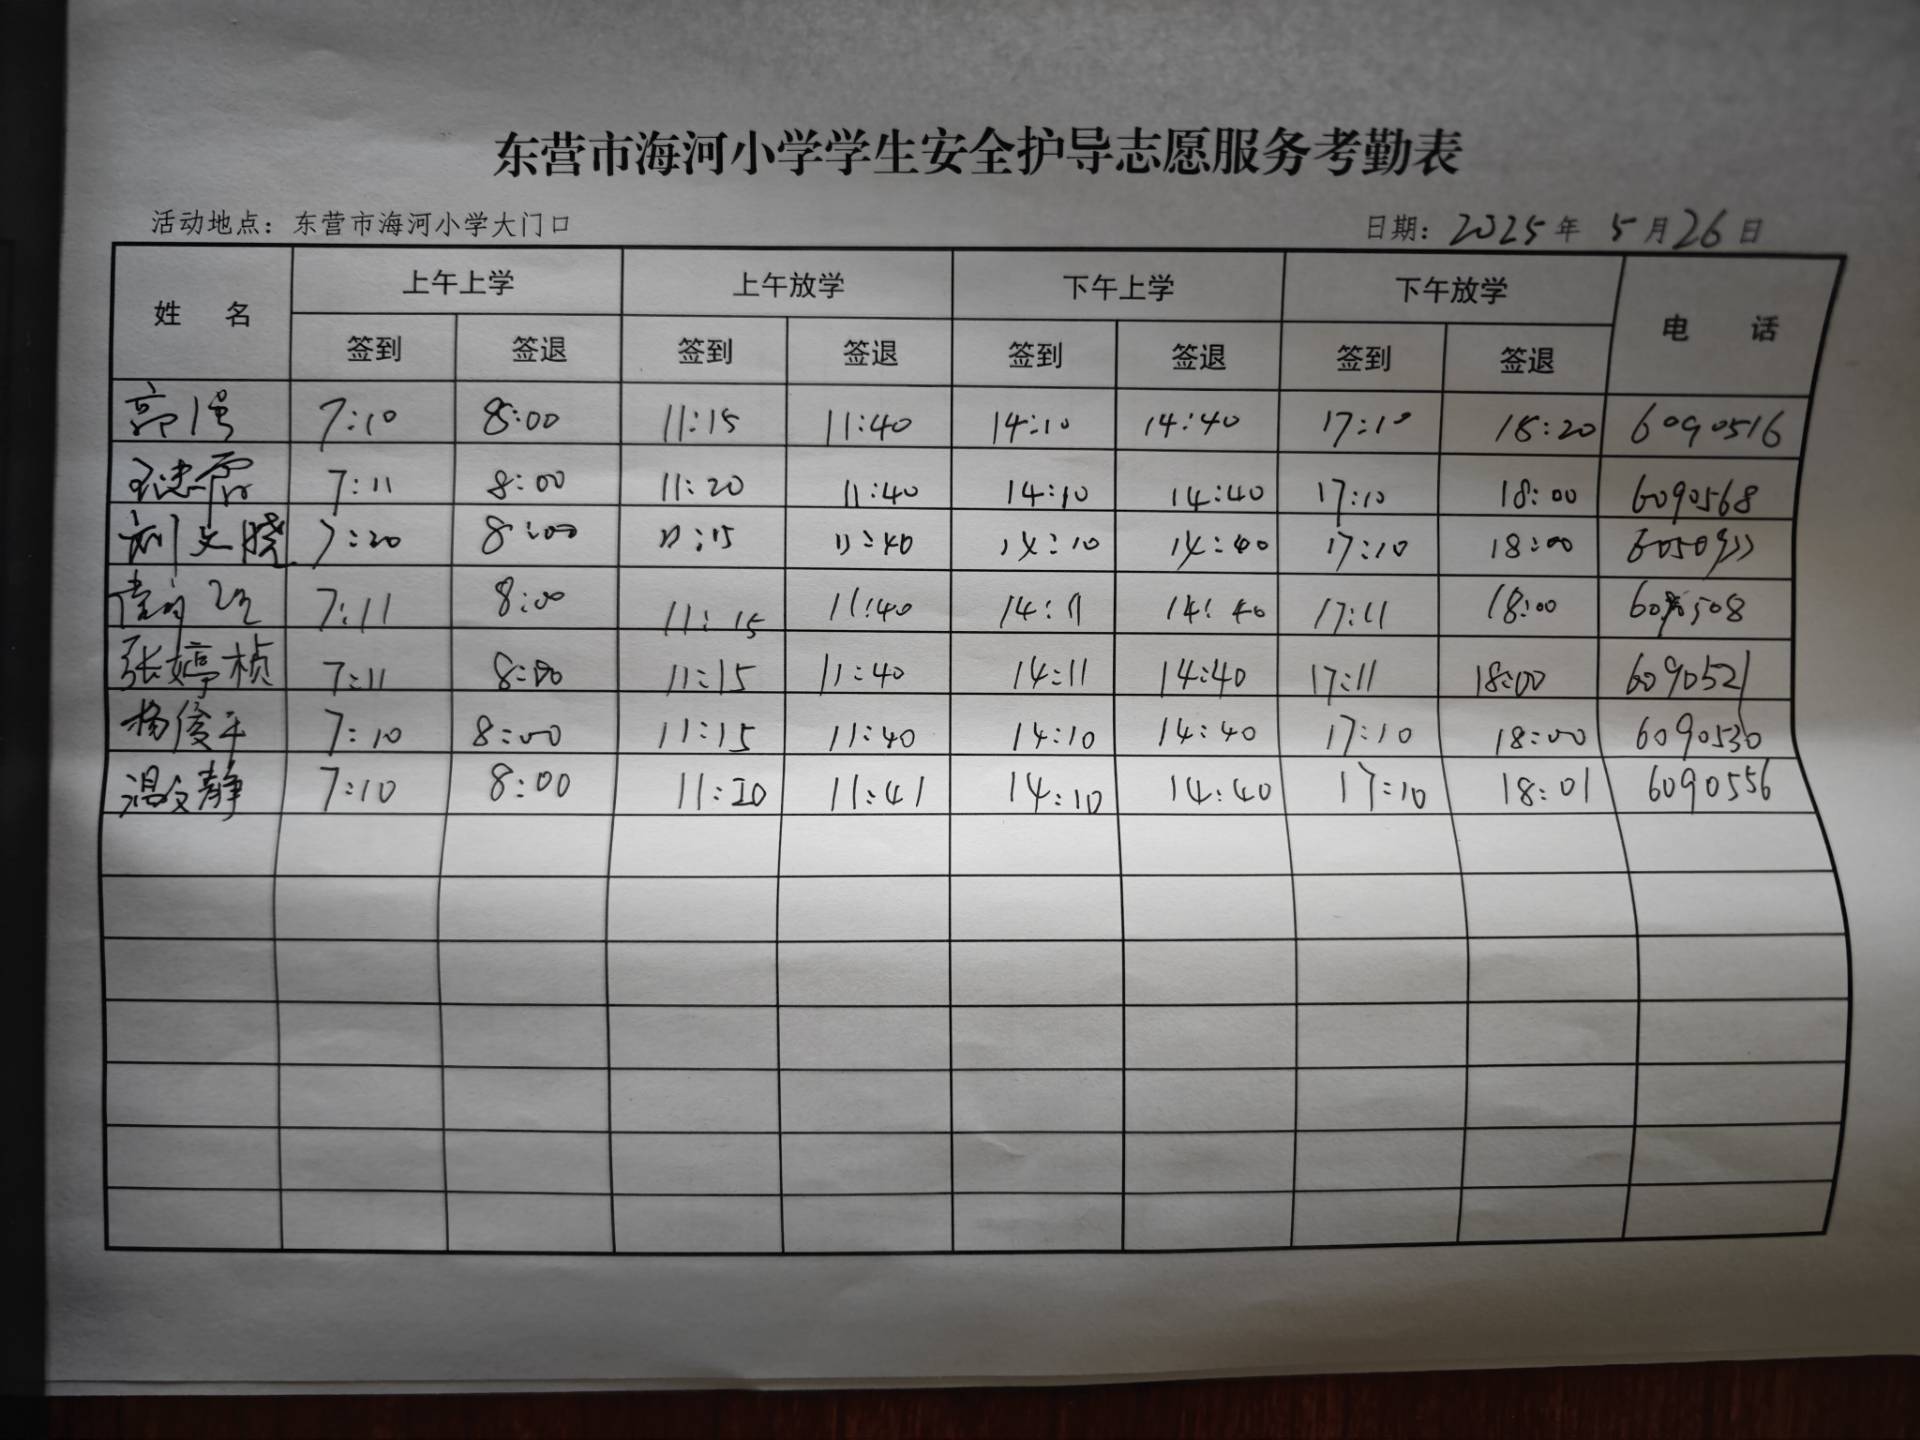 东营市海河小学学生安全护导志愿服务考勤表
活动地点：东营市海河小学大门口 日期：2025年 5月26日
姓 名 上午上学 上午放学 下午上学 下午放学 电 话
签到 签退 签到 签退 签到 签退 签到 签退
郭强 7:10 8:00 11:15 11:40 14:10 14:40 17:10 18:20 6090516
7:11 8:00 11:20 11:40 14:10 14:40 17:10 18:00 6090568
刘文晓 7:20 8:00 11:15 11:40 14:10 14:40 17:10 18:00
7:11 8:00 11:15 11:40 14:11 14:40 17:11 18:00 6090508
张婷桢 7:11 8:00 11:15 11:40 14:11 14:40 17:11 18:00 6090521
杨俊平 7:10 8:00 11:15 11:40 14:10 14:40 17:10 18:00 6090530
温文静 7:10 8:00 11:20 11:41 14:10 14:40 17:10 18:01 6090556